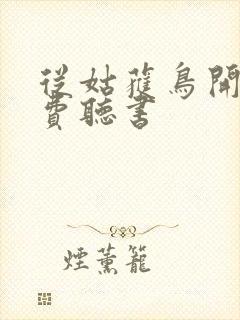 從姑蘿鳥開
費聽書
煙薰籠